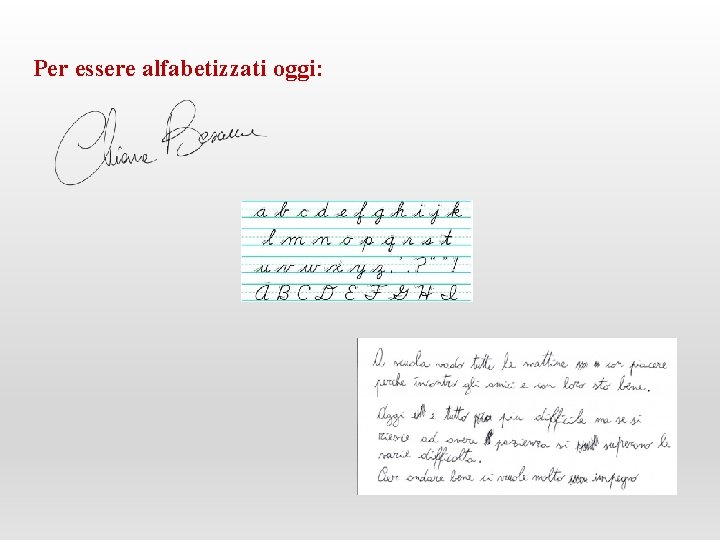 Per essere alfabetizzati oggi:
Chiara
a b c d e f g h i j k
l m n o p q r s t
u v w x y z . ' . ? " " !
A B C D E F G H I
A scuola vado tutte le mattine con piacere
perche incontro gli amici e con loro sto bene.
Oggi è tutto più difficile ma se si
riesce ad avere pazienza si superano le
varie difficoltà.
Per andare bene ci vuole molto impegno